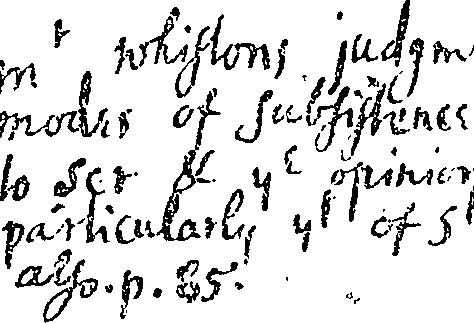 mr whistons judgm
modes of subsistence
to see &c ye opinion
particularly yt of S
also. p. 85.